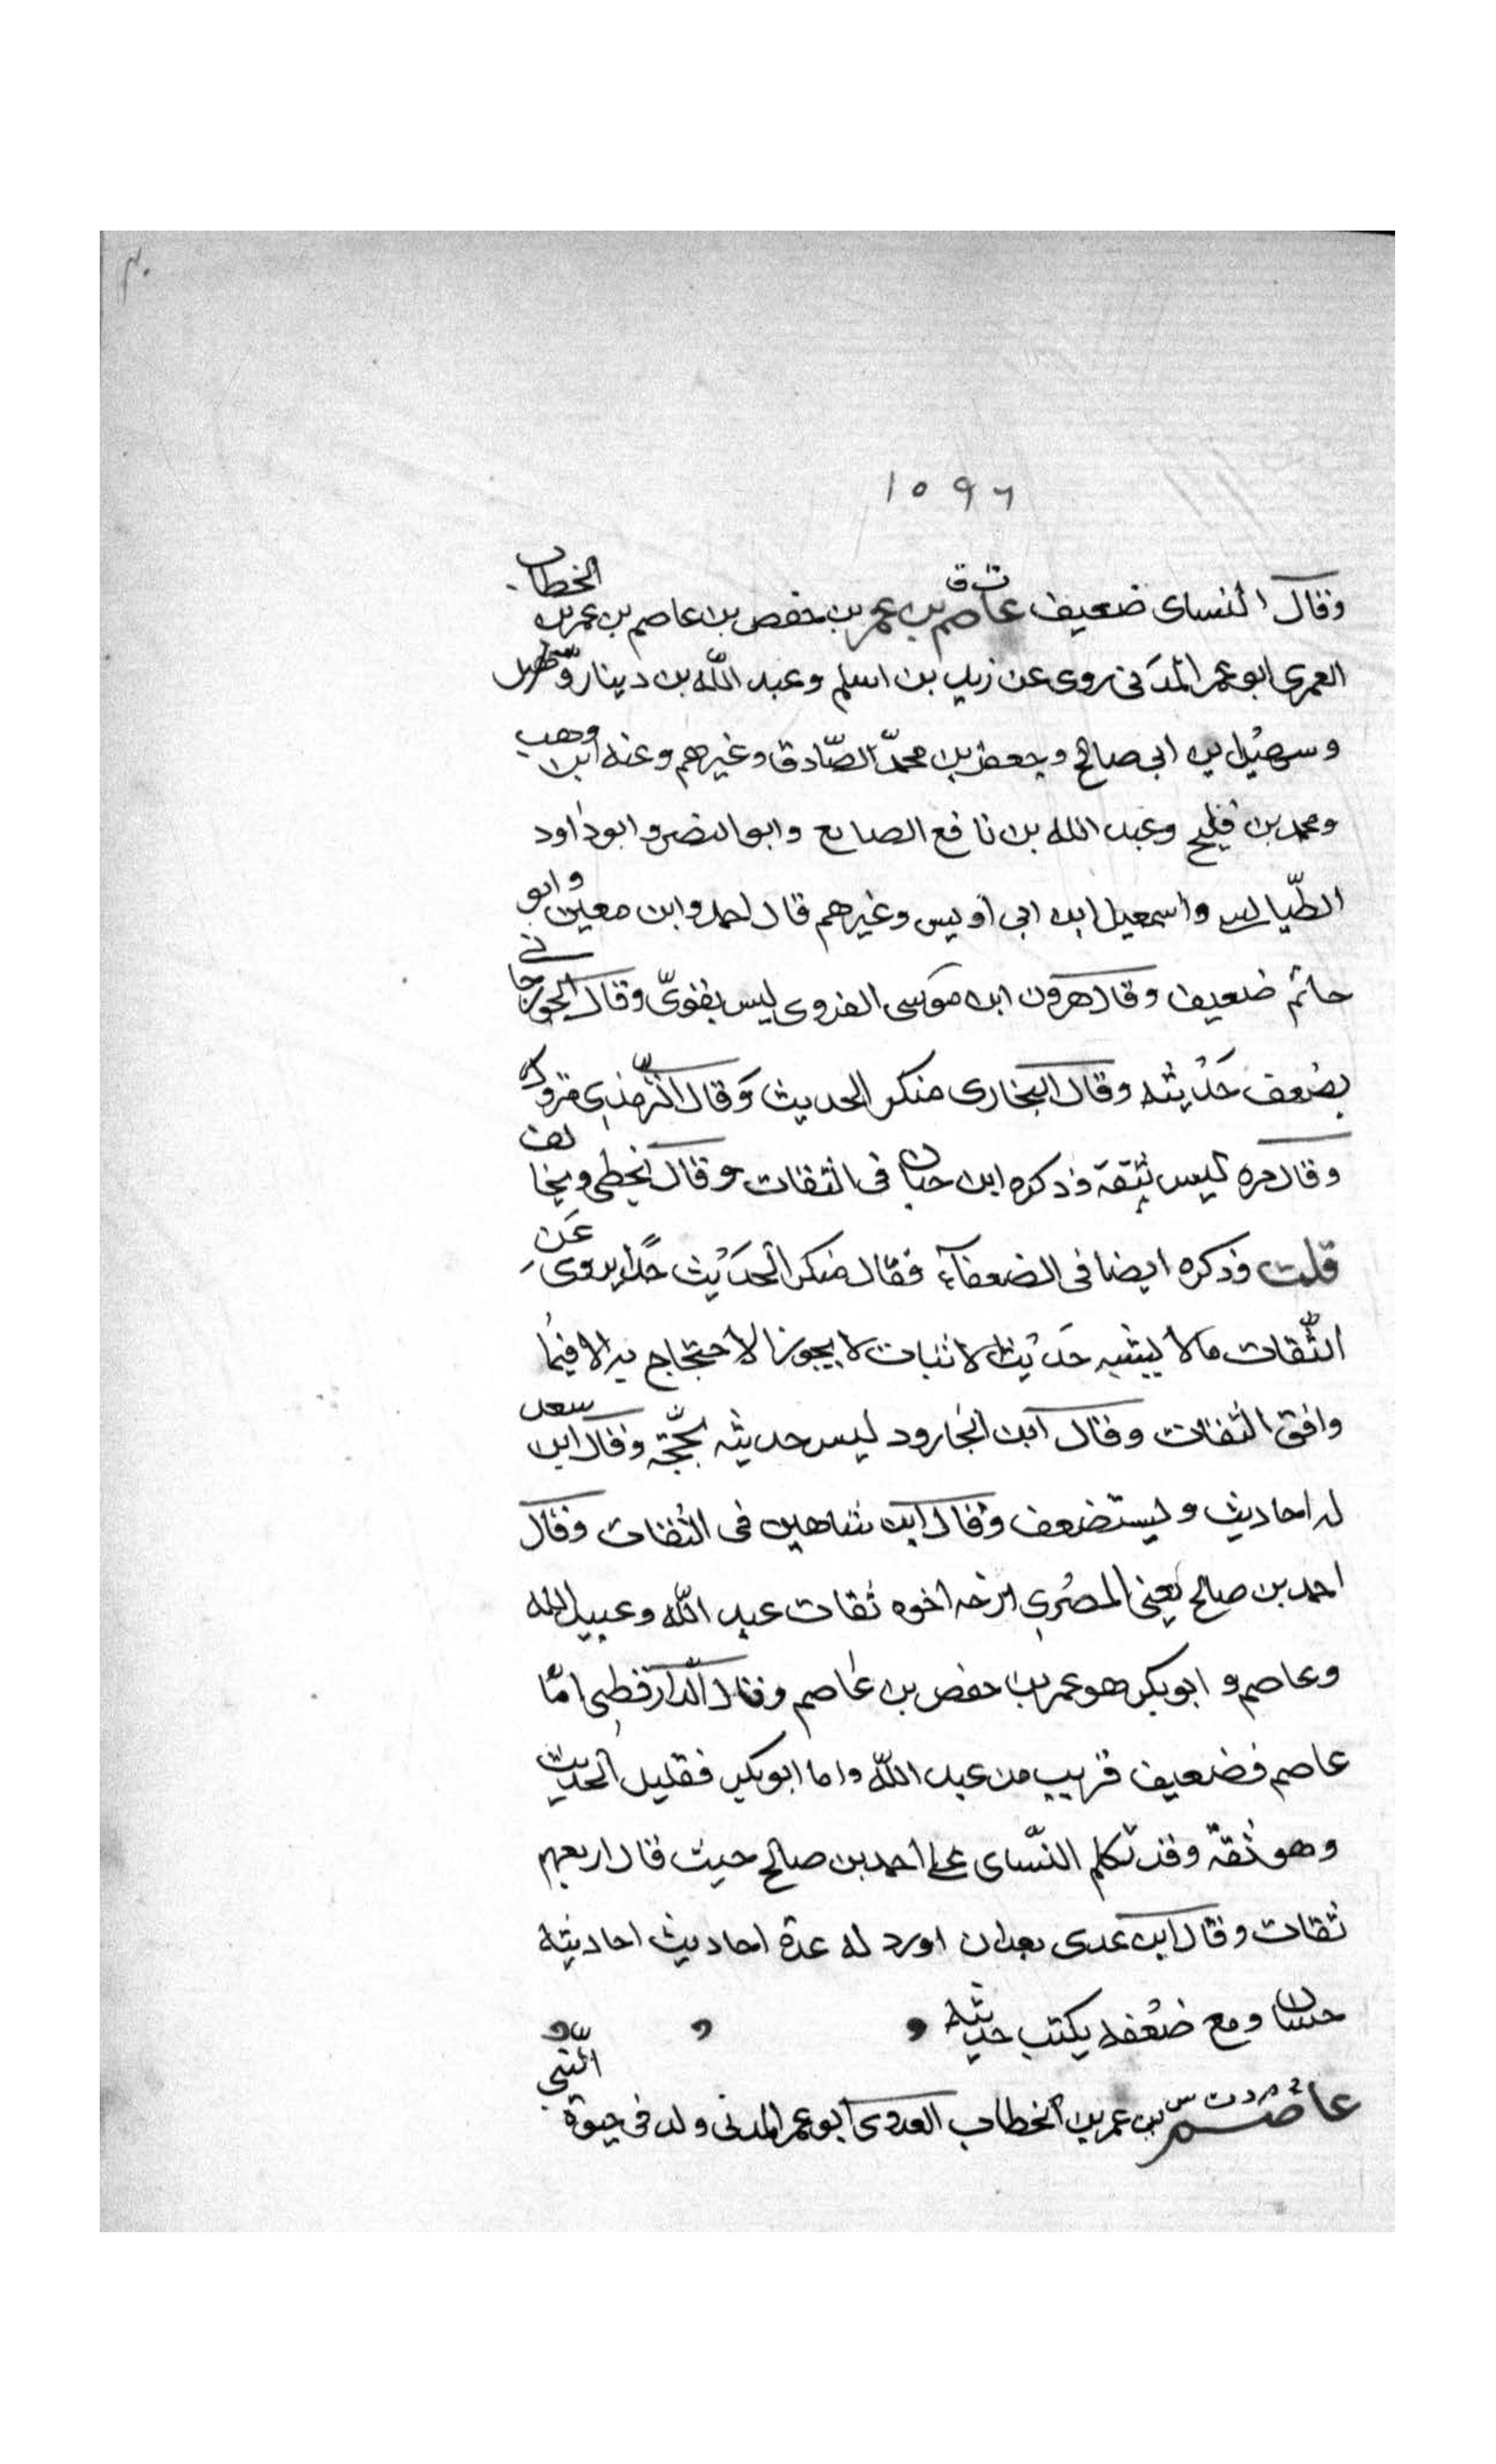 ١٥٩٦
وقال النساى ضعيف عاصم ت ق بن عمر بن حفص بن عاصم بن عمر بن الخطاب
العمرى ابو عمر المدنى روى عن زيد بن اسلم وعبد الله بن دينار
وسهيل بن ابى صالح وجعفر بن محمد الصّادق وغيرهم وعنه ابن وهب
ومحمد بن فليح وعبد الله بن نافع الصايع وابو النضر وابو داود
الطّيالسى واسمعيل ابن ابى اويس وغيرهم قال احمد وابن معين وابو
حاتم ضعيف وقال هرون ابن موسى الفروى ليس بقوىّ وقال الجوزجانى
يضعف حديثه وقال البخارى منكر الحديث وقال التّرمذى متروك
وقال مره ليس بثقة وذكره ابن حبان فى الثقات وقال يخطى ويخالف
قلت وذكره ايضا فى الضعفآء فقال منكر الحديث جدّا يروى عن
الثّقات ما لا يشبه حديث الاثبات لا يجوز الاحتجاج به الا فيما
وافق الثقات وقال ابن الجارود ليس حديثه بحجّة وقال ابن سعد
له احاديث ويستضعف وقال ابن شاهين فى الثقات وقال
احمد بن صالح يعنى المصرى اربعة اخوه ثقات عبد الله وعبيد الله
وعاصم وابو بكر هو عمر بن حفص بن عاصم وقال الدّارقطنى امّا
عاصم فضعيف قريب من عبد الله واما ابو بكر فقليل الحديث
وهو ثقة وقد تكلم النّساى على احمد بن صالح حيث قال اربعهم
ثقات وقال ابن عدى بعد ان اورد له عدة احاديث احاديثه
حسان ومع ضعفه يكتب حديثه
عاصم بن عمر بن الخطاب العدوى ابو عمر المدنى ولد فى حيوة النّبى